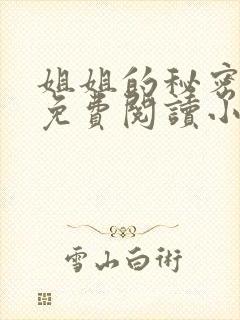 姐姐的秘密
免費閱讀小
雪山白術